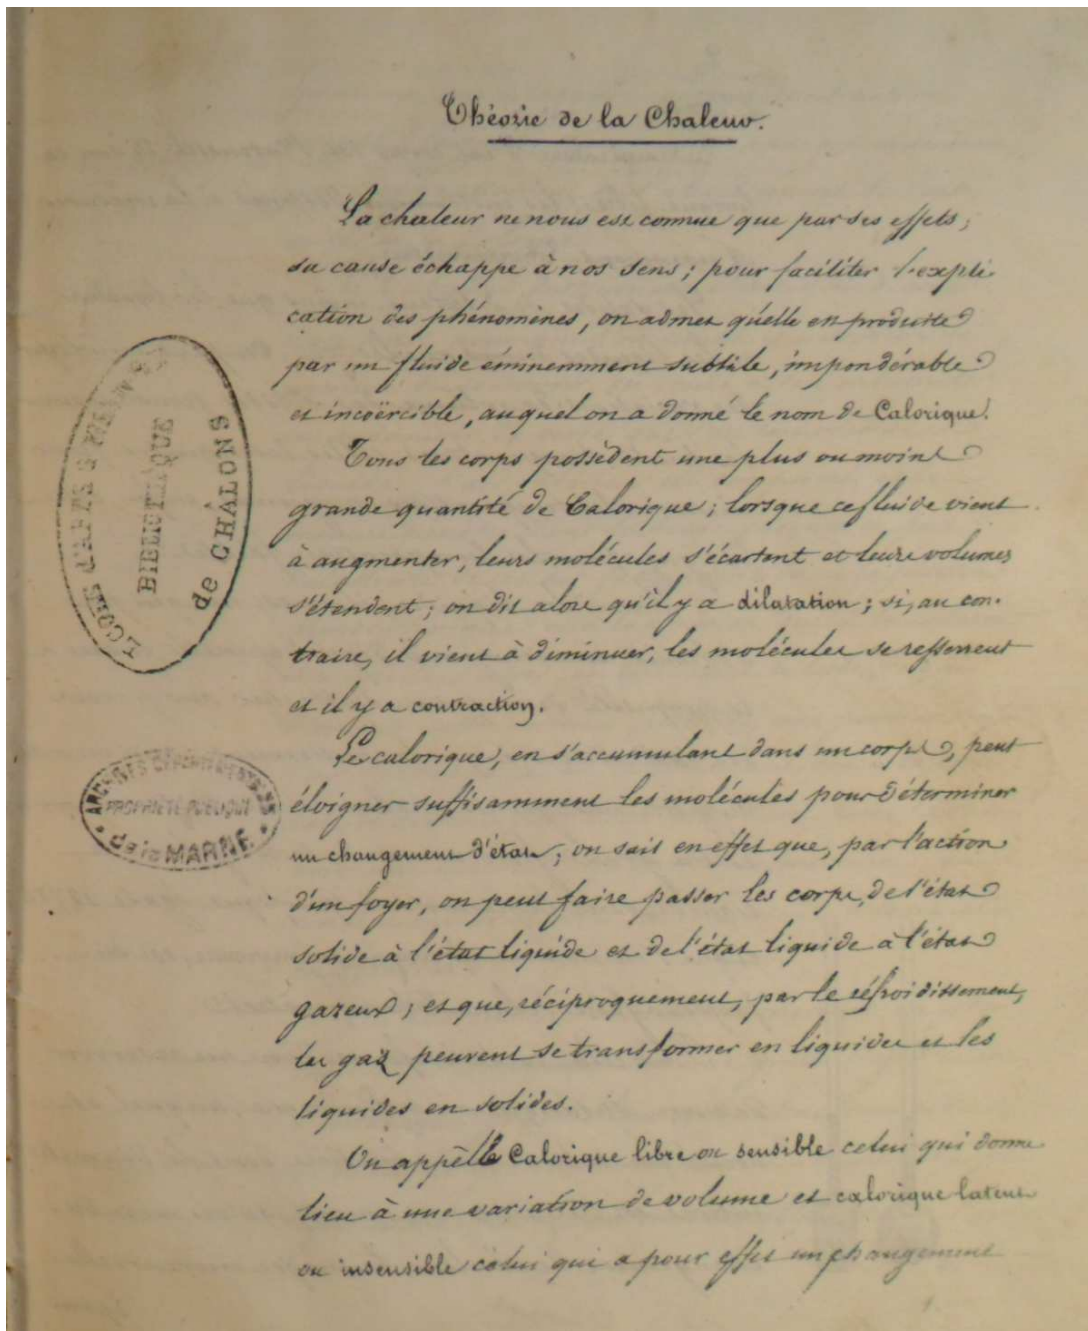 Théorie de la Chaleur.
La chaleur ne nous est connue que par ses effets;
sa cause échappe à nos sens; pour faciliter l'expli-
cation des phénomènes, on admet qu'elle en produite
par un fluide éminemment subtile, impondérable
et incoërcible, auquel on a donné le nom de Calorique.
Tous les corps possèdent une plus ou moins
grande quantité de Calorique; lorsque ce fluide vient
à augmenter, leurs molécules s'écartent et leurs volumes
s'étendent; on dit alors qu'il y a dilatation; si, au con-
traire, il vient à diminuer, les molécules se resserrent
et il y a contraction.
Le calorique, en s'accumulant dans un corps, peut
éloigner suffisamment les molécules pour déterminer
un changement d'état; on sait en effet que, par l'action
d'un foyer, on peut faire passer les corps, de l'état
solide à l'état liquide et de l'état liquide à l'état
gazeux; et que, réciproquement, par le réfroidissement,
les gaz peuvent se transformer en liquides et les
liquides en solides.
On appèlle Calorique libre ou sensible celui qui donne
lieu à une variation de volume et calorique latent
ou insensible celui qui a pour effet un changement
ECOLES D'ARTS & METIERS
BIBLIOTHEQUE
de CHÂLONS
ARCHIVES DÉPARTEMENTALES
PROPRIÉTÉ PUBLIQUE
de la MARNE